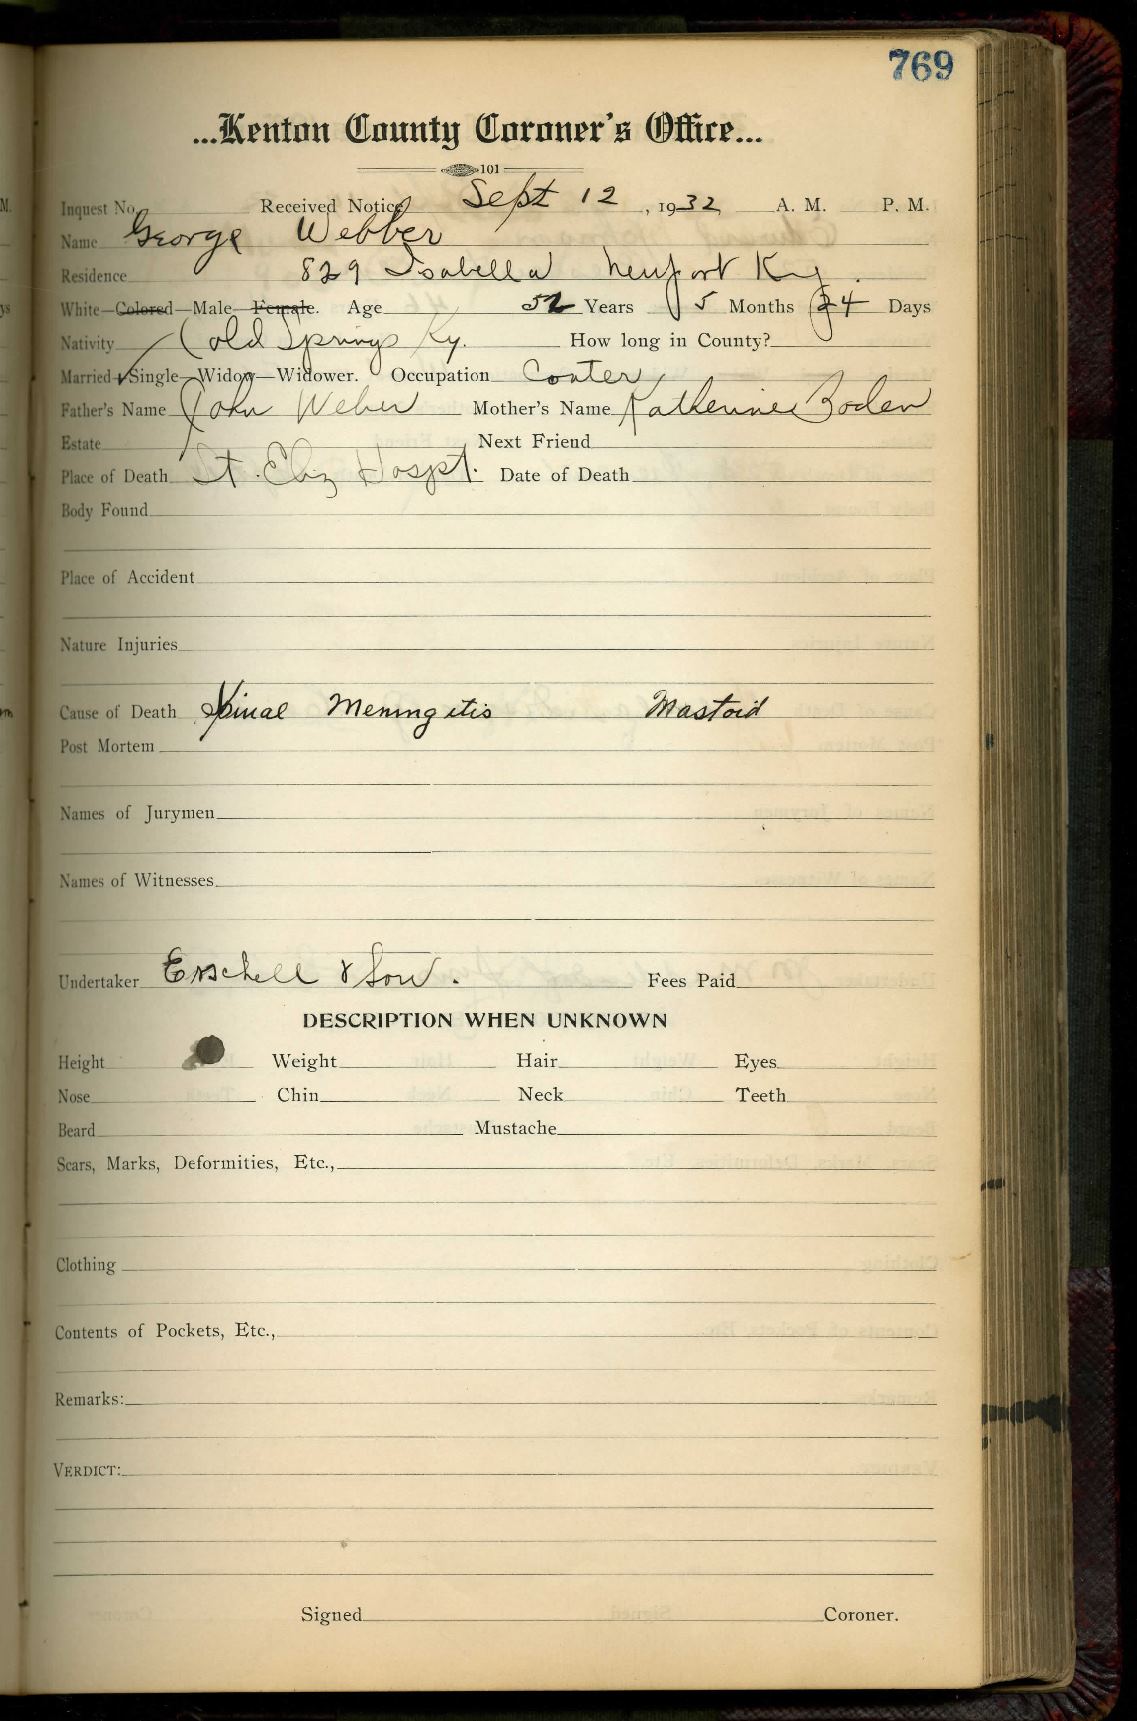 769
...Kenton County Coroner's Office...
101
Inquest No. Received Notice Sept 12, 1932, A. M. P. M.
Name George Webber
Residence 829 Isabella Newport Ky.
White—Colored—Male—Female. Age 52 Years 5 Months 24 Days
Nativity Cold Springs Ky. How long in County?
Married—Single—Widow—Widower. Occupation
Father's Name John Weber Mother's Name Katherine Boden
Estate Next Friend
Place of Death St. Eliz Hospt. Date of Death
Body Found
Place of Accident
Nature Injuries
Cause of Death Spinal Meningitis Mastoid
Post Mortem
Names of Jurymen
Names of Witnesses
Undertaker & Son. Fees Paid
DESCRIPTION WHEN UNKNOWN
Height Weight Hair Eyes
Nose Chin Neck Teeth
Beard Mustache
Scars, Marks, Deformities, Etc.,
Clothing
Contents of Pockets, Etc.,
Remarks:
VERDICT:
Signed Coroner.